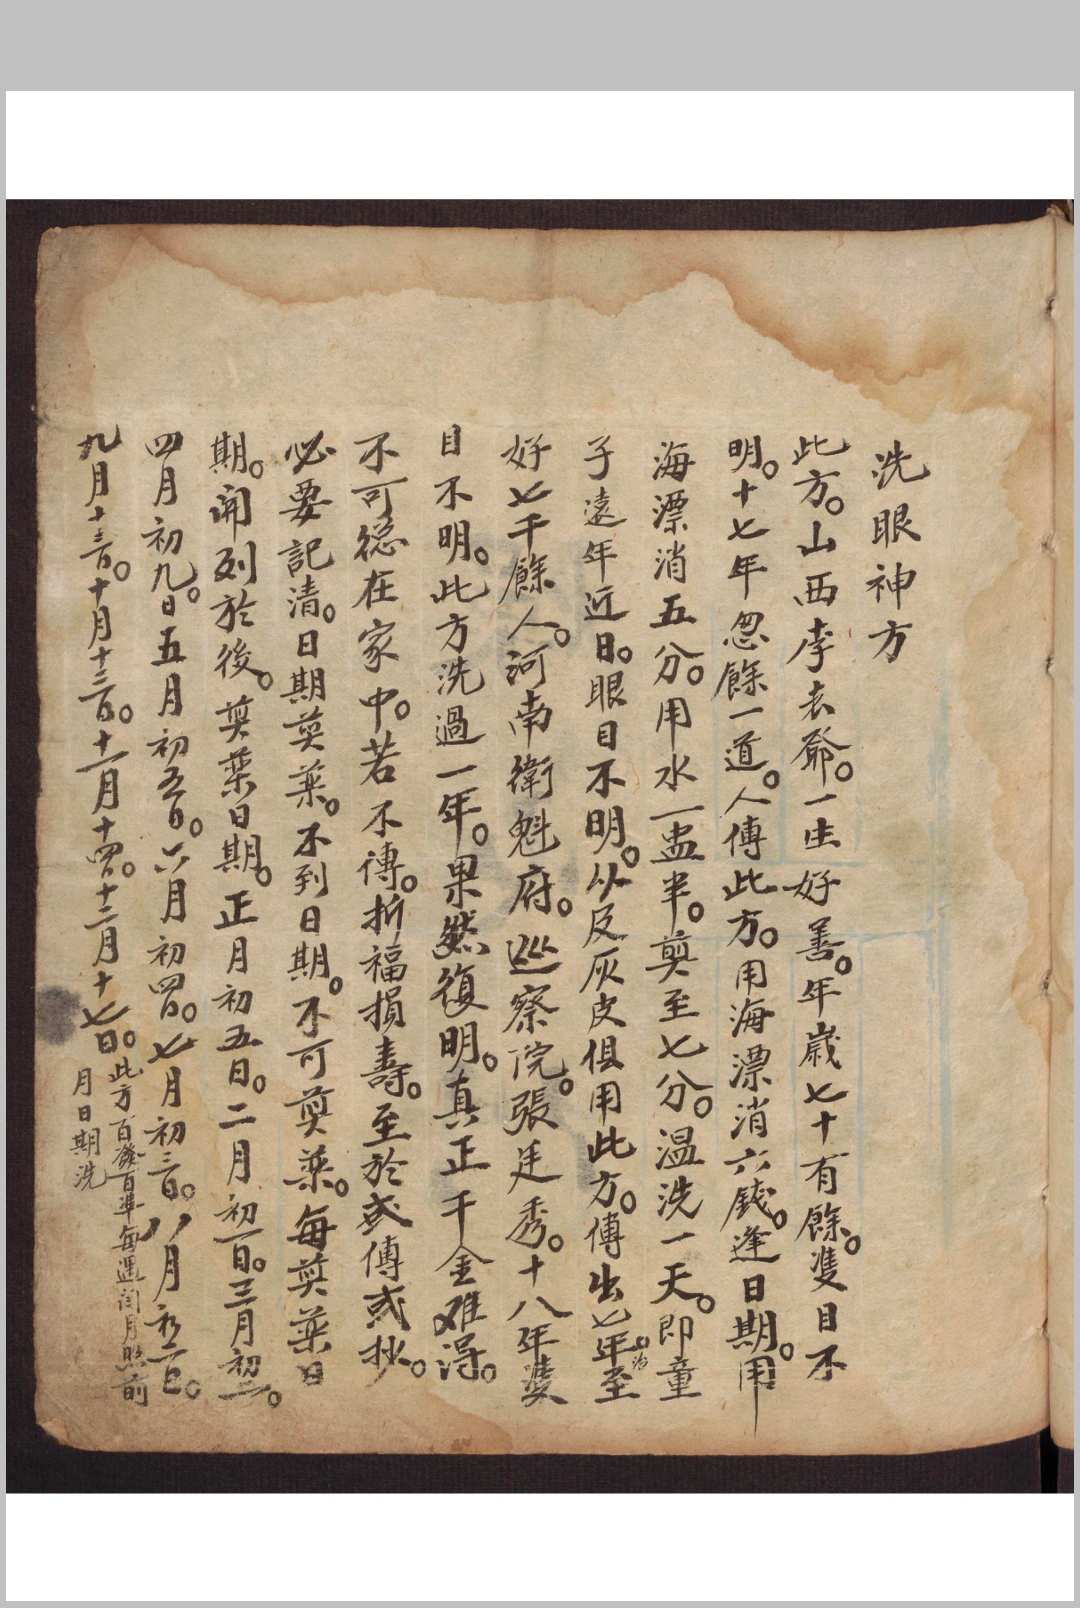 洗眼神方
此方。山西李老爺。一生好善。年歲七十有餘。雙目不
明。十七年忽餘一道。人傳此方。用海漂消六錢。逢日期。用
海漂消五分。用水一盅半。煎至七分。温洗一天。即童
子遠年近日。眼目不明。以及灰皮俱用此方。傳出七年。治至
好七千餘人。河南衛魁府。巡察院。張廷秀。十八年雙
目不明。此方洗過一年。果然復明。真正千金难得。
不可隐在家中。若不傳。折福損壽。至於或傳或抄。
必要記清。日期煎藥。不到日期。不可煎藥。每煎藥日
期。開列於後。煎藥日期。正月初五日。二月初一日。三月初二。
四月初九。日五月初五日。六月初四日。七月初三日。八月初二日。
九月十三日。十月十三日。十一月十四日。十二月十七日。此方百發百準每遇闰月照前
月日期洗